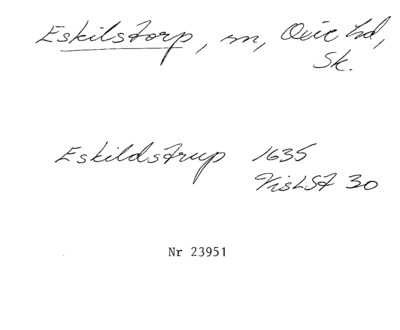 Eskilstorp, sn, Oxie hd,
Sk.
Eskildstrup 1635
VisLSt 30
Nr 23951